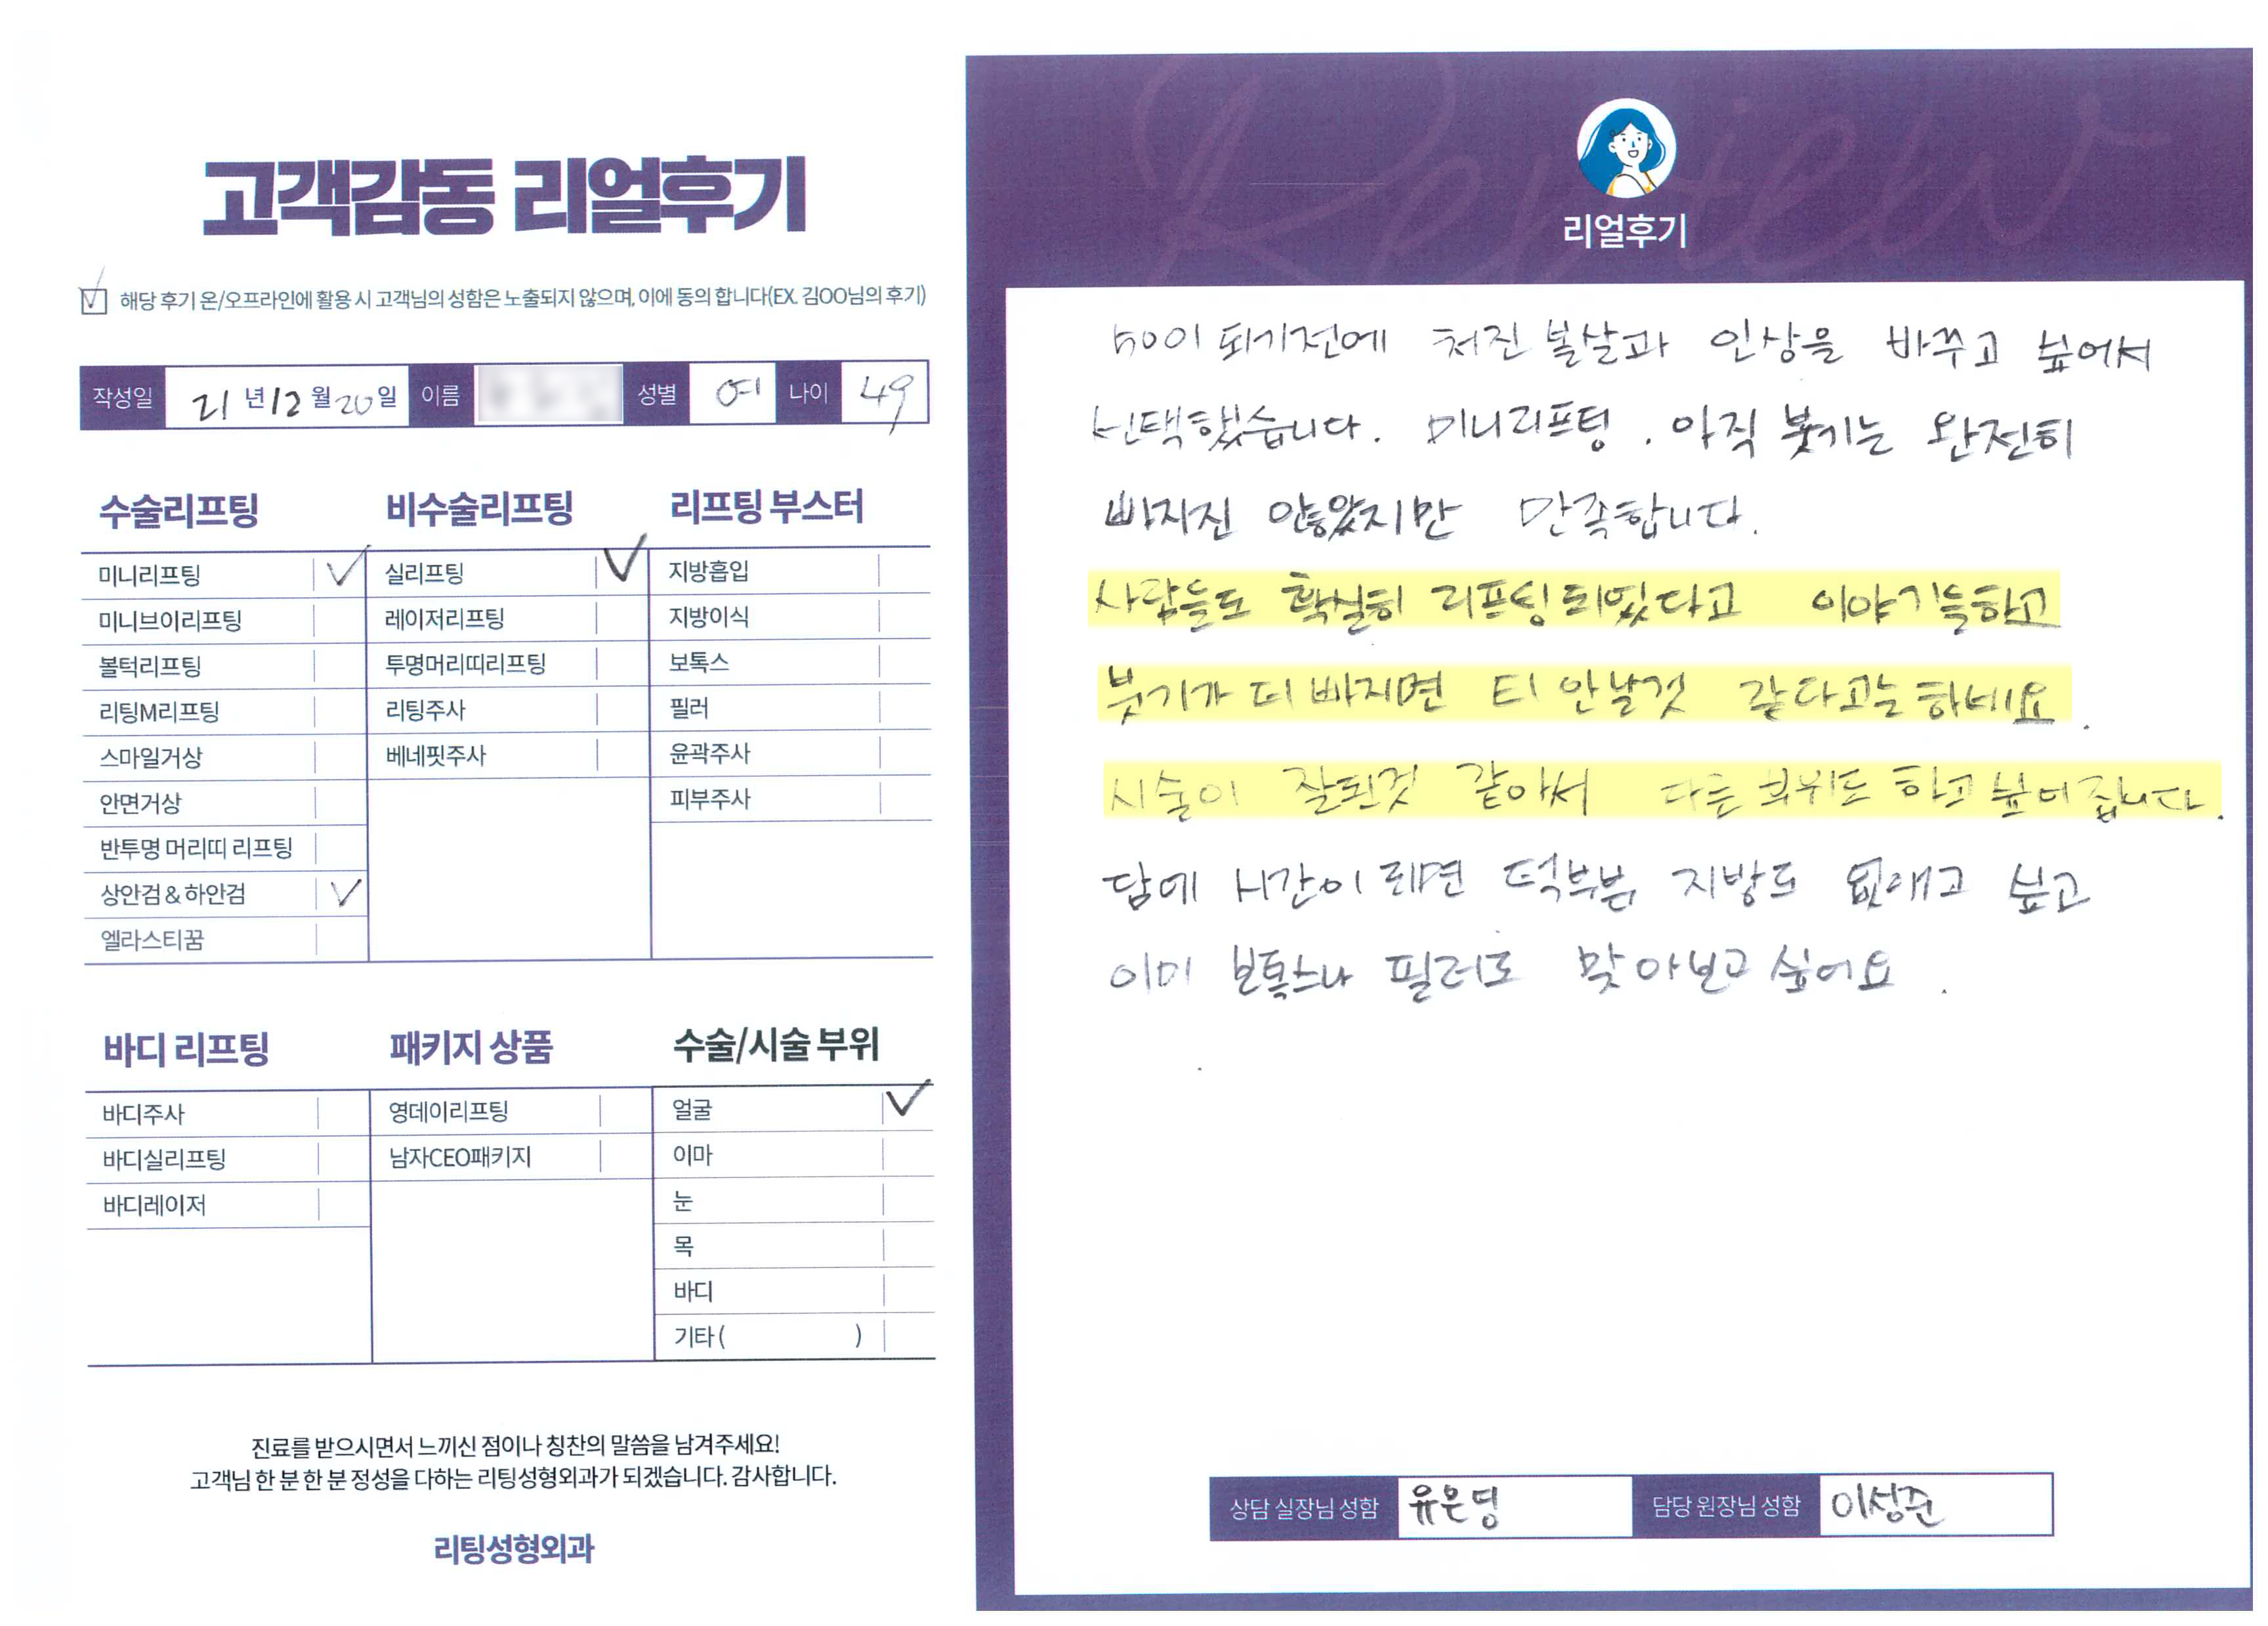 고객감동 리얼후기
해당 후기 온/오프라인에 활용 시 고객님의 성함은 노출되지 않으며, 이에 동의 합니다(EX. 김OO님의 후기)
작성일 21 년 12 월 20 일 이름 성별 여 나이 49
수술리프팅
미니리프팅
미니브이리프팅
볼턱리프팅
리팅M리프팅
스마일거상
안면거상
반투명 머리띠 리프팅
상안검 & 하안검
엘라스티꿈
비수술리프팅
실리프팅
레이저리프팅
투명머리띠리프팅
리팅주사
베네핏주사
리프팅 부스터
지방흡입
지방이식
보톡스
필러
윤곽주사
피부주사
바디 리프팅
바디주사
바디실리프팅
바디레이저
패키지 상품
영데이리프팅
남자CEO패키지
수술/시술 부위
얼굴
이마
눈
목
바디
기타 ( )
진료를 받으시면서 느끼신 점이나 칭찬의 말씀을 남겨주세요!
고객님 한 분 한 분 정성을 다하는 리팅성형외과가 되겠습니다. 감사합니다.
리팅성형외과
Review
리얼후기
50이 되기전에 처진 볼살과 인상을 바꾸고 싶어서
선택했습니다. 미니리프팅. 아직 붓기는 완전히
빠지진 않았지만 만족합니다.
사람들도 확실히 리프팅 되었다고 이야기들하고
붓기가 더 빠지면 티 안날것 같다고는 하네요.
시술이 잘된것 같아서 다른 부위도 하고 싶어집니다.
담에 시간이 되면 턱부분 지방도 없애고 싶고
이미 보톡스나 필러도 맞아보고 싶어요.
상담 실장님 성함 유은영 담당 원장님 성함 이성준